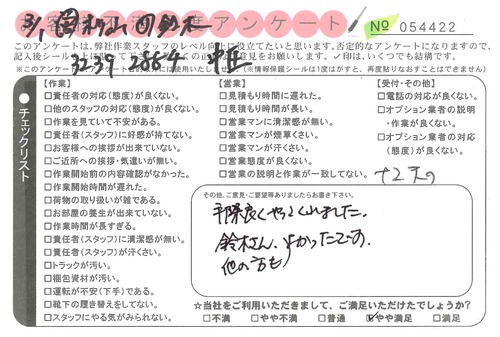 アンケート
№ 054422
このアンケートは、弊社作業スタッフのレベル向上に役立てたいと思います。否定的なアンケートになりますので、
※このアンケート
(※情報保護シールは1度がすと、再度貼りなおすことはできません)
チェックリスト
【作業】
□責任者の対応(態度)が良くない。
□他のスタッフの対応(態度)が良くない。
□作業を見ていて不安がある。
□責任者(スタッフ)に好感が持てない。
□お客様への挨拶が出来ていない。
□ご近所への挨拶・気遣いが無い。
□作業開始前の内容確認がなかった。
□作業開始時間が遅れた。
□荷物の取り扱いが雑である。
□お部屋の養生が出来ていない。
□作業時間が長すぎる。
□責任者(スタッフ)に清潔感が無い。
□責任者(スタッフ)が汗くさい。
□トラックが汚い。
□梱包資材が汚い。
□運転が不安(下手)である。
□靴下の履き替えをしてない。
□スタッフにやる気がみられない。
【営業】
□見積もり時間に遅れた。
□見積もり時間が長い。
□営業マンに清潔感が無い。
□営業マンが煙草くさい。
□営業マンが汗くさい。
□営業態度が良くない。
□営業の説明と作業が一致してない。
【受付・その他】
□電話の対応が良くない。
□オプション業者の説明
・作業が良くない。
□オプション業者の対応
(態度)が良くない。
その他、ご意見・ご要望等ありましたらお書き下さい。
手際良くやってくれました。
鈴木さん、よかったです。
他の方も
☆当社をご利用いただきまして、ご満足いただけたでしょうか?
□不満 □やや不満 □普通 ☑やや満足 □満足